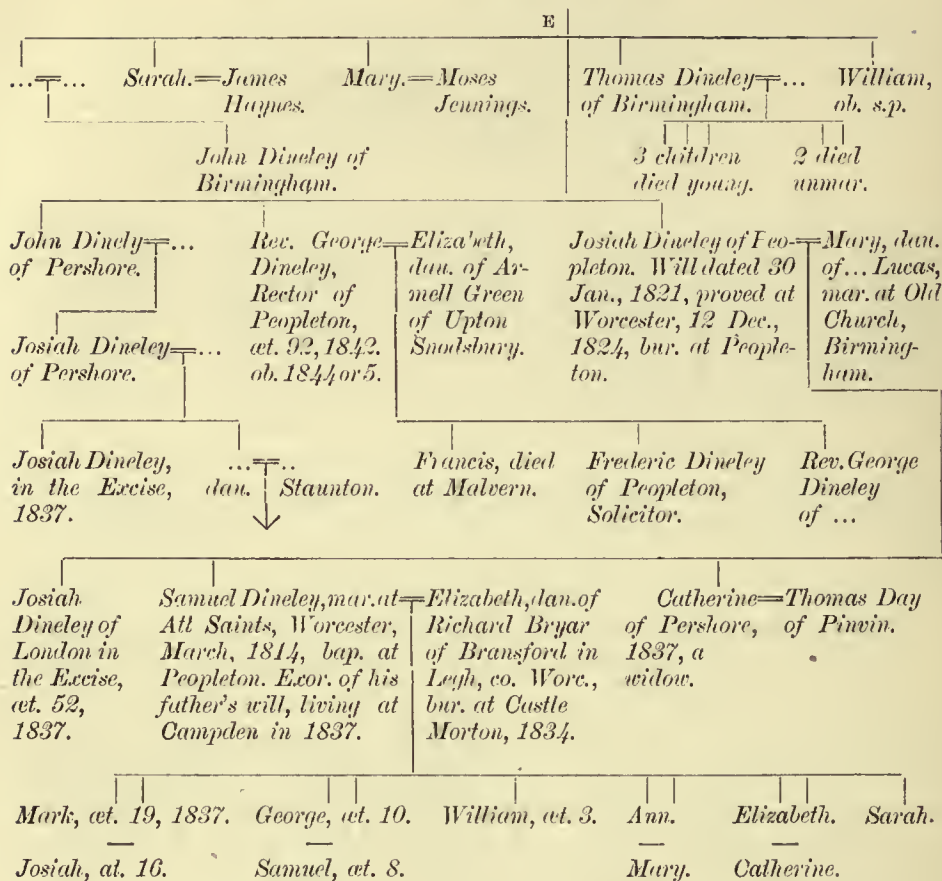 E
...=...
Sarah.=James
Haynes.
Mary.=Moses
Jennings.
Thomas Dineley=...
of Birmingham.
William,
ob. s.p.
John Dineley of
Birmingham.
3 children
died young.
2 died
unmar.
John Dinely=...
of Pershore.
Rev. George
Dineley,
Rector of
Peopleton,
æt. 92, 1842.
ob. 1844 or 5.
=Eliza'beth,
dau. of Ar-
mell Green
of Upton
Snodsbury.
Josiah Dineley of Peo-
pleton. Will dated 30
Jan., 1821, proved at
Worcester, 12 Dec.,
1824, bur. at People-
ton.
=Mary, dau.
of... Lucas,
mar. at Old
Church,
Birming-
ham.
Josiah Dineley=...
of Pershore.
Josiah Dineley,
in the Excise,
1837.
...=..
dau. Staunton.
Francis, died
at Malvern.
Frederic Dineley
of Peopleton,
Solicitor.
Rev. George
Dineley
of ...
Josiah
Dineley of
London in
the Excise,
æt. 52,
1837.
Samuel Dineley, mar. at
All Saints, Worcester,
March, 1814, bap. at
Peopleton. Exor. of his
father's will, living at
Campden in 1837.
=Elizabeth, dan. of
Richard Bryar
of Bransford in
Leigh, co. Worc.,
bur. at Castle
Morton, 1834.
Catherine=Thomas Day
of Pershore, of Pinvin.
1837, a
widow.
Mark, æt. 19, 1837.
George, æt. 10.
William, æt. 3.
Ann.
Elizabeth.
Sarah.
Josiah, æt. 16.
Samuel, æt. 8.
Mary.
Catherine.